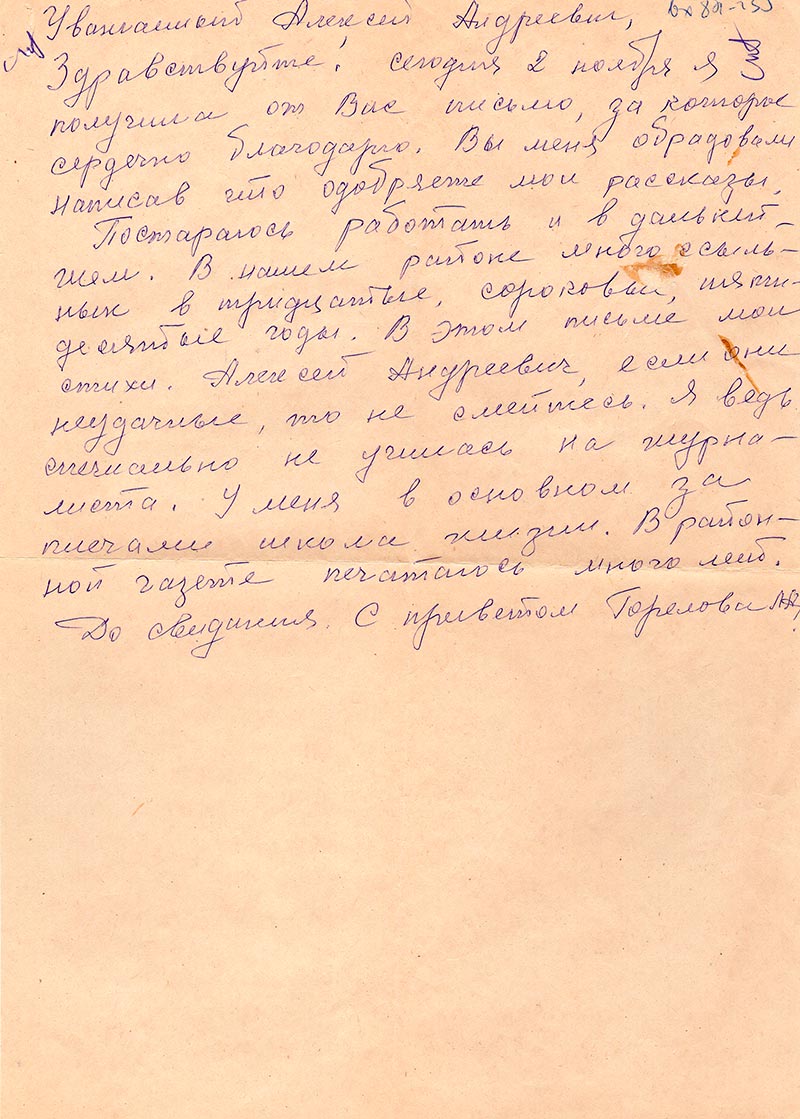 Уважаемый Алексей Андреевич,
Здравствуйте! сегодня 2 ноября я
получила от Вас письмо, за которое
сердечно благодарю. Вы меня обрадовали
написав что одобряете мои рассказы.
Постараюсь работать и в дальней-
шем. В нашем районе много ссыль-
ных в тридцатые, сороковые, пяти-
десятые годы. В этом письме мои
стихи. Алексей Андреевич, если они
неудачные, то не смейтесь. Я ведь
специально не училась на журна-
листа. У меня в основном за
плечами школа жизни. В район-
ной газете печатаюсь много лет.
До свидания. С приветом Горелова